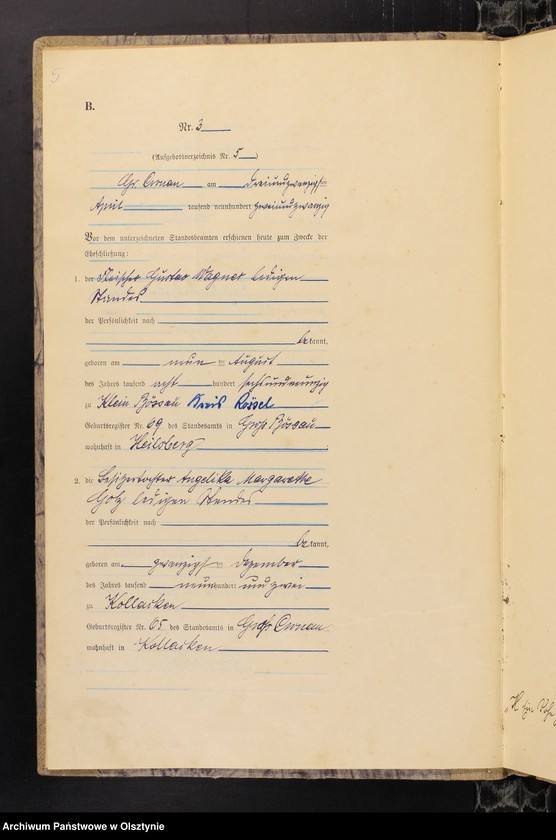 5
B.
Nr. 3
(Aufgebotsverzeichnis Nr. 5)
am dreiundzwanzigsten
April tausend neunhundert zweiundzwanzig
Vor dem unterzeichneten Standesbeamten erschienen heute zum Zwecke der
Eheschließung:
1. der Fleischer Gustav Wagner ledigen
Standes
der Persönlichkeit nach
bekannt,
geboren am neun ten August
des Jahres tausend acht hundert sechsundneunzig
zu Klein Bössau Kreis Rössel
Geburtsregister Nr. 69 des Standesamts in Groß Bössau
wohnhaft in Heilsberg
2. die Besitzertochter Angelika Margarethe
ledigen Standes
der Persönlichkeit nach
bekannt,
geboren am zwanzigsten Dezember
des Jahres tausend neunhundert und zwei
zu Kollacken
Geburtsregister Nr. 65 des Standesamts in Groß
wohnhaft in Kollacken
Archiwum Państwowe w Olsztynie